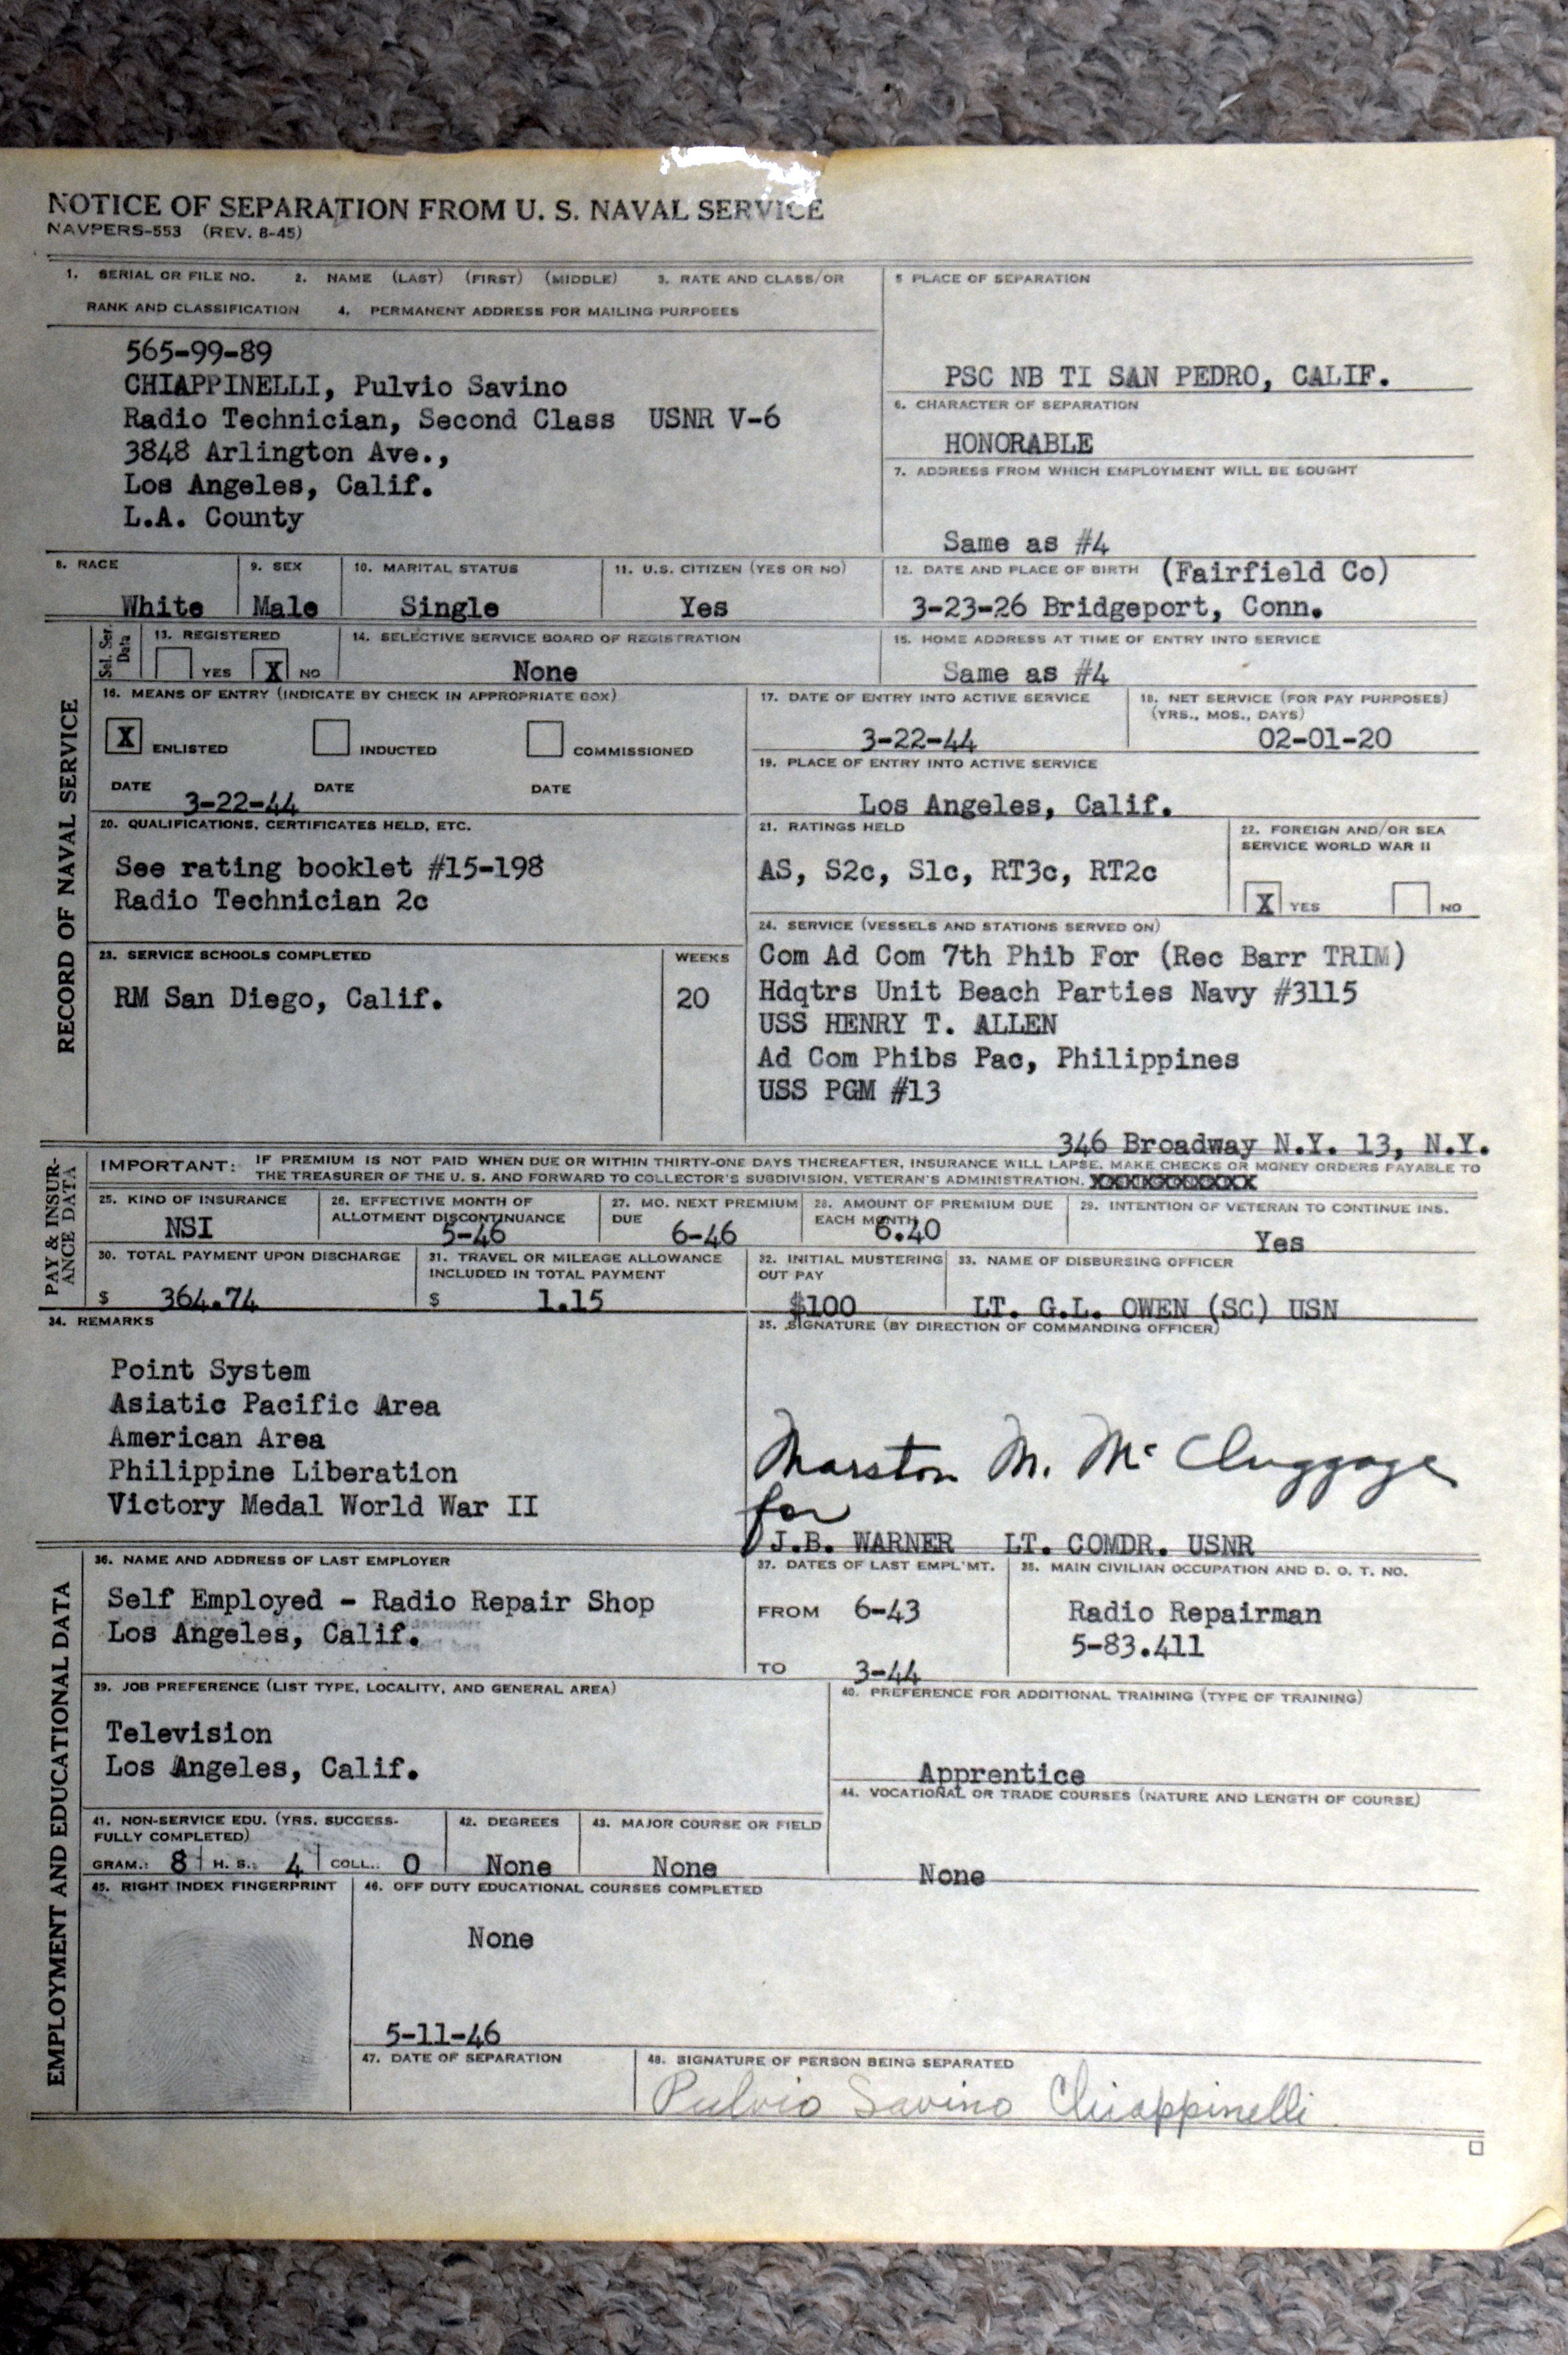 NOTICE OF SEPARATION FROM U. S. NAVAL SERVICE
NAVPERS-553 (REV. 8-45)
1. SERIAL OR FILE NO. 2. NAME (LAST) (FIRST) (MIDDLE) 3. RATE AND CLASS/OR
RANK AND CLASSIFICATION 4. PERMANENT ADDRESS FOR MAILING PURPOSES
565-99-89
CHIAPPINELLI, Pulvio Savino
Radio Technician, Second Class USNR V-6
3848 Arlington Ave.,
Los Angeles, Calif.
L.A. County
5 PLACE OF SEPARATION
PSC NB TI SAN PEDRO, CALIF.
6. CHARACTER OF SEPARATION
HONORABLE
7. ADDRESS FROM WHICH EMPLOYMENT WILL BE SOUGHT
Same as #4
8. RACE
White
9. SEX
Male
10. MARITAL STATUS
Single
11. U.S. CITIZEN (YES OR NO)
Yes
12. DATE AND PLACE OF BIRTH (Fairfield Co)
3-23-26 Bridgeport, Conn.
Sel. Ser.
Data
13. REGISTERED
YES X NO
14. SELECTIVE SERVICE BOARD OF REGISTRATION
None
15. HOME ADDRESS AT TIME OF ENTRY INTO SERVICE
Same as #4
RECORD OF NAVAL SERVICE
16. MEANS OF ENTRY (INDICATE BY CHECK IN APPROPRIATE BOX)
X ENLISTED INDUCTED COMMISSIONED
DATE 3-22-44 DATE DATE
17. DATE OF ENTRY INTO ACTIVE SERVICE
3-22-44
18. NET SERVICE (FOR PAY PURPOSES)
(YRS., MOS., DAYS)
02-01-20
19. PLACE OF ENTRY INTO ACTIVE SERVICE
Los Angeles, Calif.
20. QUALIFICATIONS, CERTIFICATES HELD, ETC.
See rating booklet #15-198
Radio Technician 2c
21. RATINGS HELD
AS, S2c, S1c, RT3c, RT2c
22. FOREIGN AND/OR SEA
SERVICE WORLD WAR II
X YES NO
23. SERVICE SCHOOLS COMPLETED WEEKS
RM San Diego, Calif. 20
24. SERVICE (VESSELS AND STATIONS SERVED ON)
Com Ad Com 7th Phib For (Rec Barr TRIM)
Hdqtrs Unit Beach Parties Navy #3115
USS HENRY T. ALLEN
Ad Com Phibs Pac, Philippines
USS PGM #13
346 Broadway N.Y. 13, N.Y.
PAY & INSUR-
ANCE DATA
IMPORTANT: IF PREMIUM IS NOT PAID WHEN DUE OR WITHIN THIRTY-ONE DAYS THEREAFTER, INSURANCE WILL LAPSE. MAKE CHECKS OR MONEY ORDERS PAYABLE TO
THE TREASURER OF THE U. S. AND FORWARD TO COLLECTOR'S SUBDIVISION, VETERAN'S ADMINISTRATION,
25. KIND OF INSURANCE
NSI
26. EFFECTIVE MONTH OF
ALLOTMENT DISCONTINUANCE
5-46
27. MO. NEXT PREMIUM
DUE
6-46
28. AMOUNT OF PREMIUM DUE
EACH MONTH
6.40
29. INTENTION OF VETERAN TO CONTINUE INS.
Yes
30. TOTAL PAYMENT UPON DISCHARGE
$ 364.74
31. TRAVEL OR MILEAGE ALLOWANCE
INCLUDED IN TOTAL PAYMENT
$ 1.15
32. INITIAL MUSTERING
OUT PAY
$100
33. NAME OF DISBURSING OFFICER
LT. G.L. OWEN (SC) USN
34. REMARKS
Point System
Asiatic Pacific Area
American Area
Philippine Liberation
Victory Medal World War II
35. SIGNATURE (BY DIRECTION OF COMMANDING OFFICER)
Marston M. McCluggage
for
J.B. WARNER LT. COMDR. USNR
EMPLOYMENT AND EDUCATIONAL DATA
36. NAME AND ADDRESS OF LAST EMPLOYER
Self Employed - Radio Repair Shop
Los Angeles, Calif.
37. DATES OF LAST EMPL'MT.
FROM 6-43
TO 3-44
38. MAIN CIVILIAN OCCUPATION AND D. O. T. NO.
Radio Repairman
5-83.411
39. JOB PREFERENCE (LIST TYPE, LOCALITY, AND GENERAL AREA)
Television
Los Angeles, Calif.
40. PREFERENCE FOR ADDITIONAL TRAINING (TYPE OF TRAINING)
Apprentice
41. NON-SERVICE EDU. (YRS. SUCCESS-
FULLY COMPLETED)
GRAM.: 8 H. S.: 4 COLL.: 0
42. DEGREES
None
43. MAJOR COURSE OR FIELD
None
44. VOCATIONAL OR TRADE COURSES (NATURE AND LENGTH OF COURSE)
None
45. RIGHT INDEX FINGERPRINT
46. OFF DUTY EDUCATIONAL COURSES COMPLETED
None
5-11-46
47. DATE OF SEPARATION
48. SIGNATURE OF PERSON BEING SEPARATED
Pulvio Savino Chiappinelli